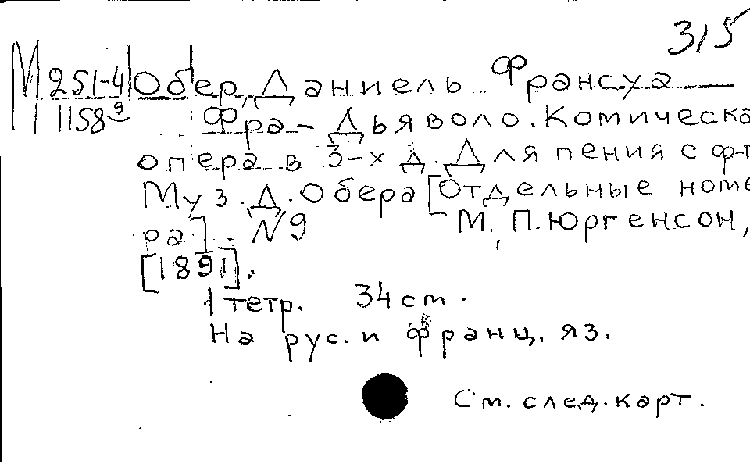 315
М 251-4 Обер, Даниель Франсуа
1158 9 Фра-Дьяволо. Комическа
опера в 3-х д. Для пения с ф-п
Муз. Д. Обера [Отдельные номе
ра]. N9 М., П. Юргенсон,
[1891].
1 тетр. 34 см.
На рус. и франц. яз.
См. след. карт.